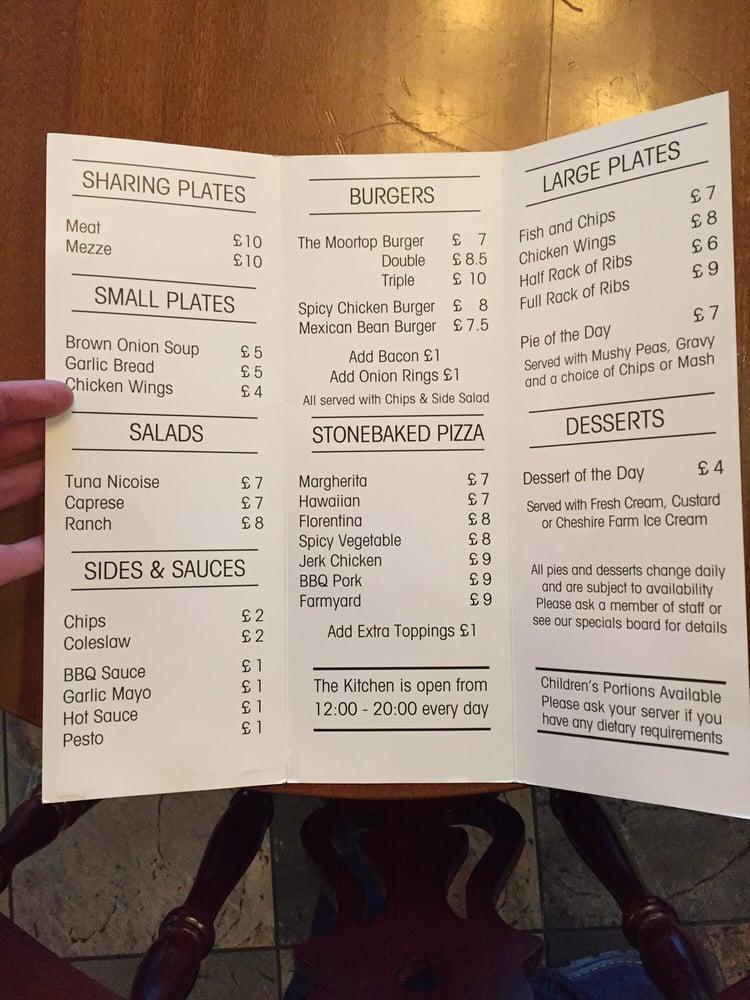 SHARING PLATES
Meat £10
Mezze £10
SMALL PLATES
Brown Onion Soup £5
Garlic Bread £5
Chicken Wings £4
SALADS
Tuna Nicoise £7
Caprese £7
Ranch £8
SIDES & SAUCES
Chips £2
Coleslaw £2
BBQ Sauce £1
Garlic Mayo £1
Hot Sauce £1
Pesto £1
BURGERS
The Moortop Burger £ 7
Double £8.5
Triple £ 10
Spicy Chicken Burger £ 8
Mexican Bean Burger £7.5
Add Bacon £1
Add Onion Rings £1
All served with Chips & Side Salad
STONEBAKED PIZZA
Margherita £7
Hawaiian £7
Florentina £8
Spicy Vegetable £8
Jerk Chicken £9
BBQ Pork £9
Farmyard £9
Add Extra Toppings £1
The Kitchen is open from
12:00 - 20:00 every day
LARGE PLATES
Fish and Chips £7
Chicken Wings £8
Half Rack of Ribs £6
Full Rack of Ribs £9
Pie of the Day £7
Served with Mushy Peas, Gravy
and a choice of Chips or Mash
DESSERTS
Dessert of the Day £4
Served with Fresh Cream, Custard
or Cheshire Farm Ice Cream
All pies and desserts change daily
and are subject to availability
Please ask a member of staff or
see our specials board for details
Children's Portions Available
Please ask your server if you
have any dietary requirements